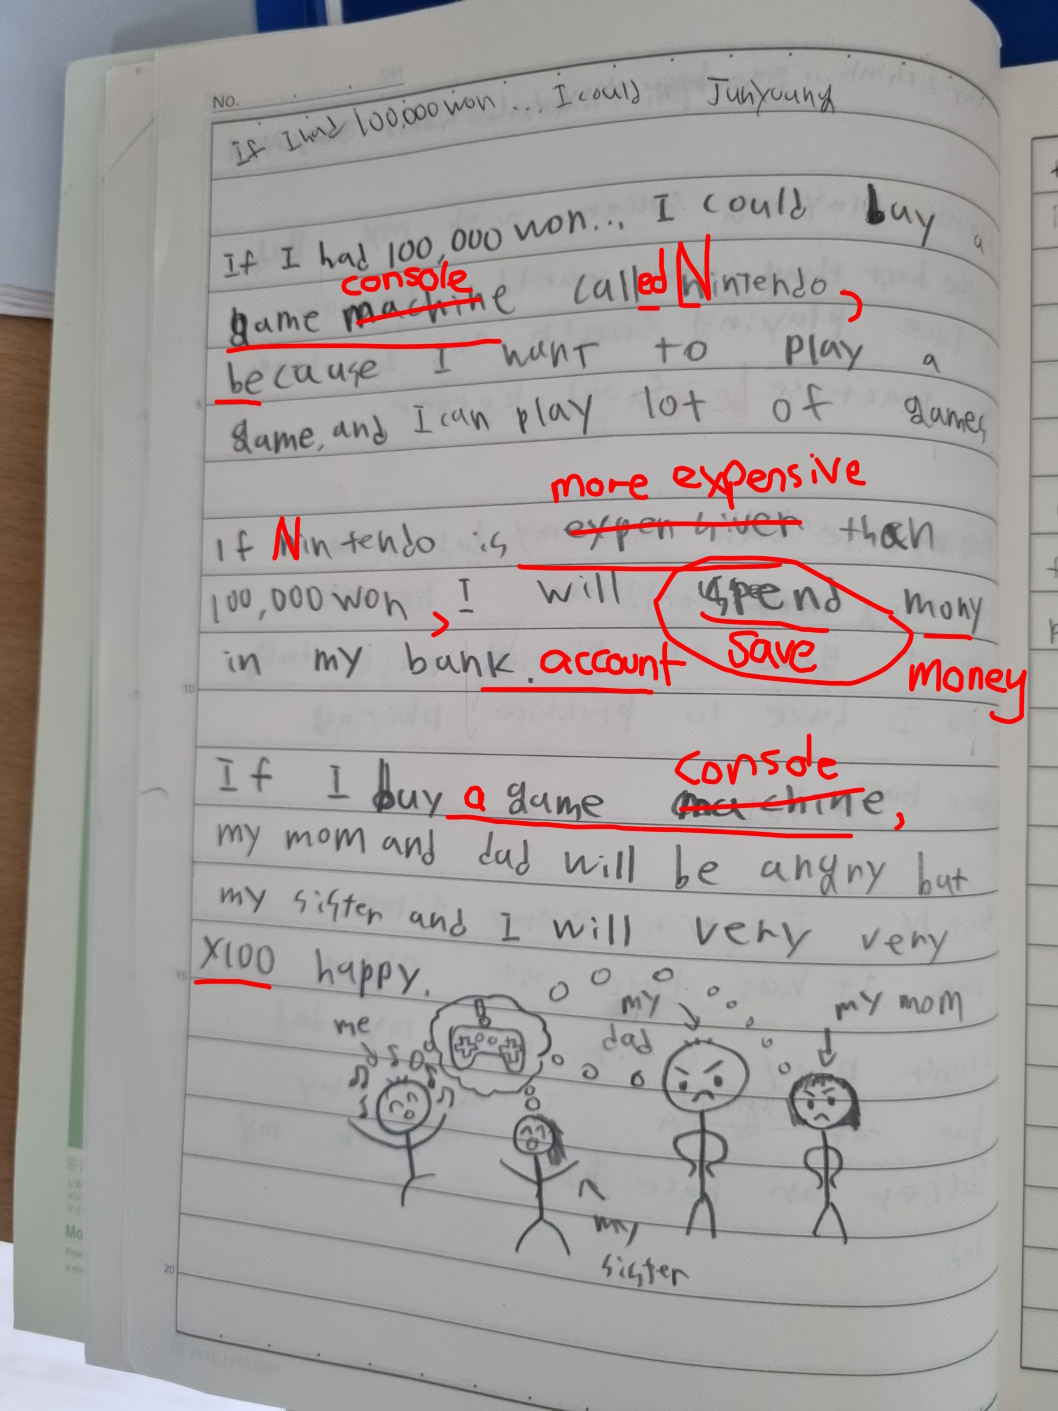 No.
If I had 100,000 won... I could Junyoung
If I had 100,000 won... I could buy a
console
game machine called Nintendo,
because I want to play a
game, and I can play lot of games
more expensive
If Nintendo is expensiver than
100,000 won, I will spend mony
save
in my bank. account
money
console
If I buy a game machine,
my mom and dad will be angry but
my sister and I will very very
X100 happy.
me
my
dad
my mom
my
sister
5
10
15
20